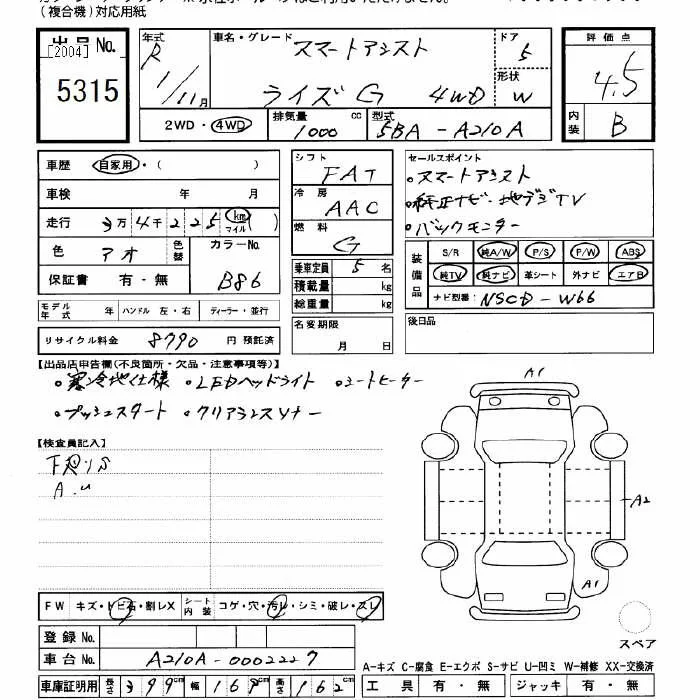 (複合機)対応用紙
出品No.
[2004]
5315
年式 R 1/11月
車名・グレード スマートアシスト
ライズ G 4WD
ドア 5
形状 W
2WD・4WD
排気量 1000 cc
型式 5BA-A210A
評価点 4.5
内装 B
車歴 自家用・( )
車検 年 月
走行 3万4千225 km マイル( )
色 アオ 色替 カラーNo. B86
保証書 有・無
モデル年式 年 ハンドル 左・右 ディーラー・並行
リサイクル料金 8790 円 預託済
シフト FAT
冷房 AAC
燃料 G
乗車定員 5 名
積載量 kg
総重量 kg
名変期限 月 日
セールスポイント
・スマートアシスト
・純正ナビ・地デジTV
・バックモニター
装備品 S/R 純A/W P/S P/W ABS
純TV 純ナビ 革シート 外ナビ エアB
ナビ型番 NSCD-W66
後日品
【出品店申告欄(不良箇所・欠品・注意事項等)】
・寒冷地仕様 ・LEDヘッドライト ・シートヒーター
・プッシュスタート ・クリアランスソナー
【検査員記入】
A1
A2
A1
スペア
FW キズ・トビ石・割レX シート内装 コゲ・穴・汚レ・シミ・破レ・スレ
登録No.
車台No. A210A-0002227
車庫証明用 長さ 399cm 幅 169cm 高さ 162cm
A-キズ C-腐食 E-エクボ S-サビ U-凹ミ W-補修 XX-交換済
工具 有・無 ジャッキ 有・無